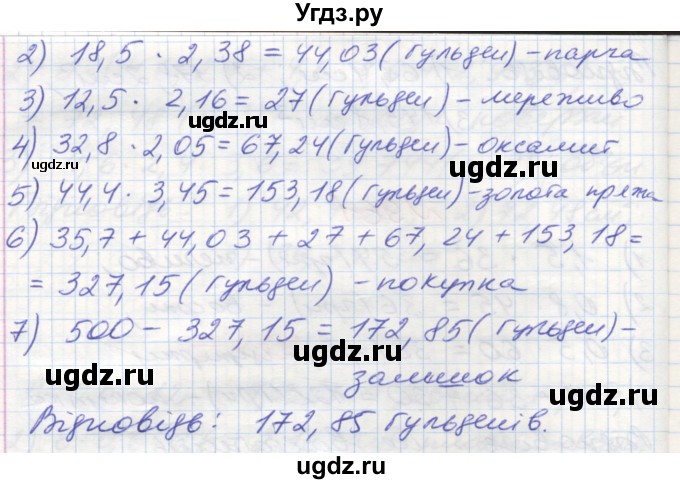 Угдз.ру
2) 18,5 · 2,38 = 44,03 (гульден) - парча
3) 12,5 · 2,16 = 27 (гульден) - мереживо
4) 32,8 · 2,05 = 67,24 (гульден) - оксамит
5) 44,4 · 3,45 = 153,18 (гульден) - золота пряжа
6) 35,7 + 44,03 + 27 + 67,24 + 153,18 =
= 327,15 (гульден) - покупка
7) 500 - 327,15 = 172,85 (гульден) -
залишок
Відповідь: 172,85 гульденів.
uгдz.ru
uгдz.ru
uгдz.ru
uгдz.ru
uгдz.ru
uгдz.ru
uгдz.ru
uгдz.ru